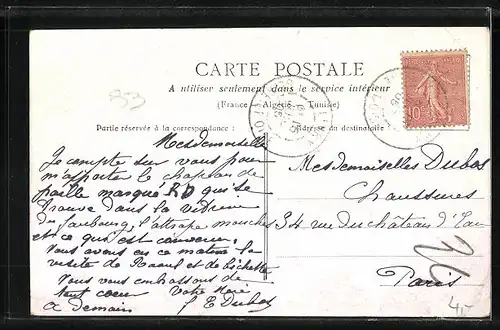 CARTE POSTALE
A utiliser seulement dans le service intérieur
(France - Algérie - Tunisie)
Partie réservée à la correspondance :
Adresse du destinataire
Mesdemoiselles
Je compte sur vous pour
m'apporter le chapeau de
paille marqué RD qui se
trouve dans la vitrine
du faubourg, l'attrape mouches
et ce qui est convenu.
Nous avons eu ce matin la
visite de Raoul et de
Nous vous embrassons de
tout coeur Votre Mère
a demain E Dubos
Mesdemoiselles Dubos
Chaussures
34 rue du château d'Eau
Paris
10
4,-